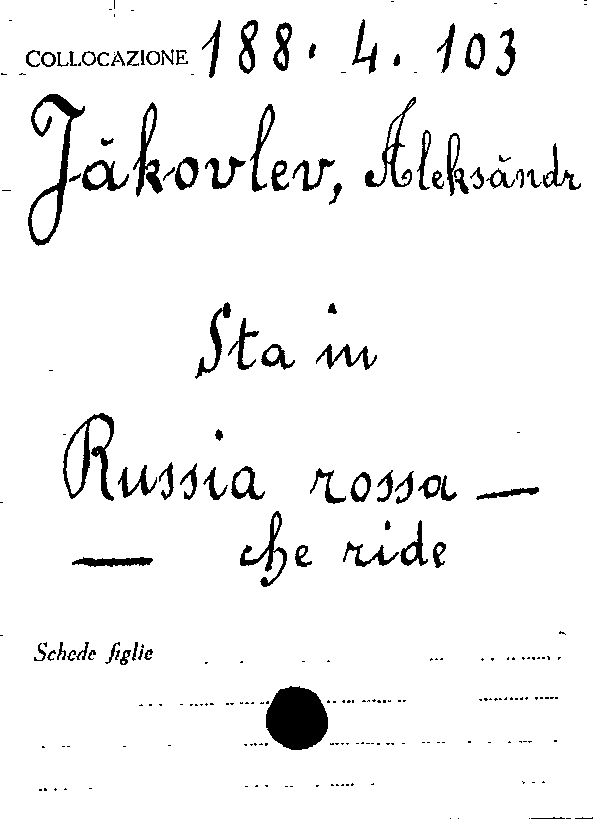 COLLOCAZIONE 188. 4. 103
Jákovlev, Aleksándr
Sta in
Russia rossa —
— che ride
Schede figlie